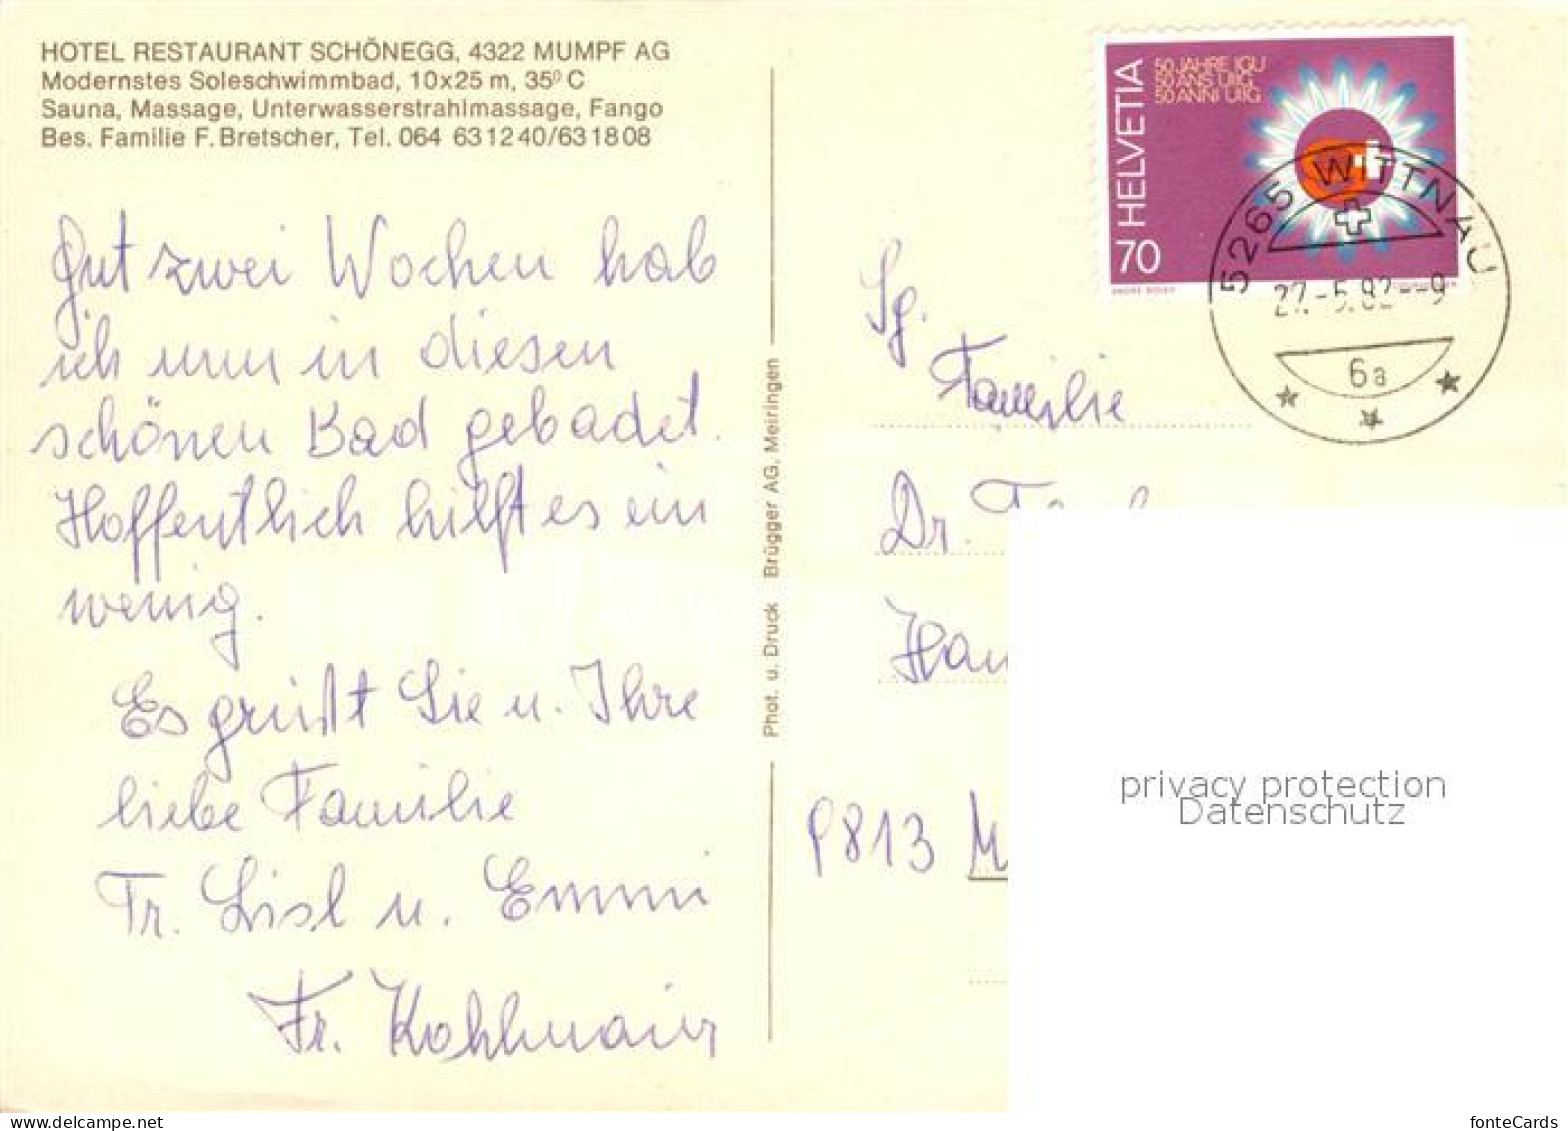 HOTEL RESTAURANT SCHÖNEGG, 4322 MUMPF AG
Modernstes Soleschwimmbad, 10x25 m, 35⁰ C
Sauna, Massage, Unterwasserstrahlmassage, Fango
Bes. Familie F. Bretscher, Tel. 064 63 12 40/63 18 08
Gut zwei Wochen hab
ich nun in diesen
schönen Bad gebadet.
Hoffentlich hilft es ein
wenig.
Es grüßt Sie u. Ihre
liebe Familie
Fr. Lisl u. Emmi
Fr. Kohlmair
Phot. u. Druck Brügger AG, Meiringen
HELVETIA
50 JAHRE IGU
50 ANS UIIG
50 ANNI UIIG
70
5265 WITTNAU
27.-5.82--9
6a
Sg.
Familie
Dr.
P813
privacy protection
Datenschutz
www.delcampe.net
fonteCards